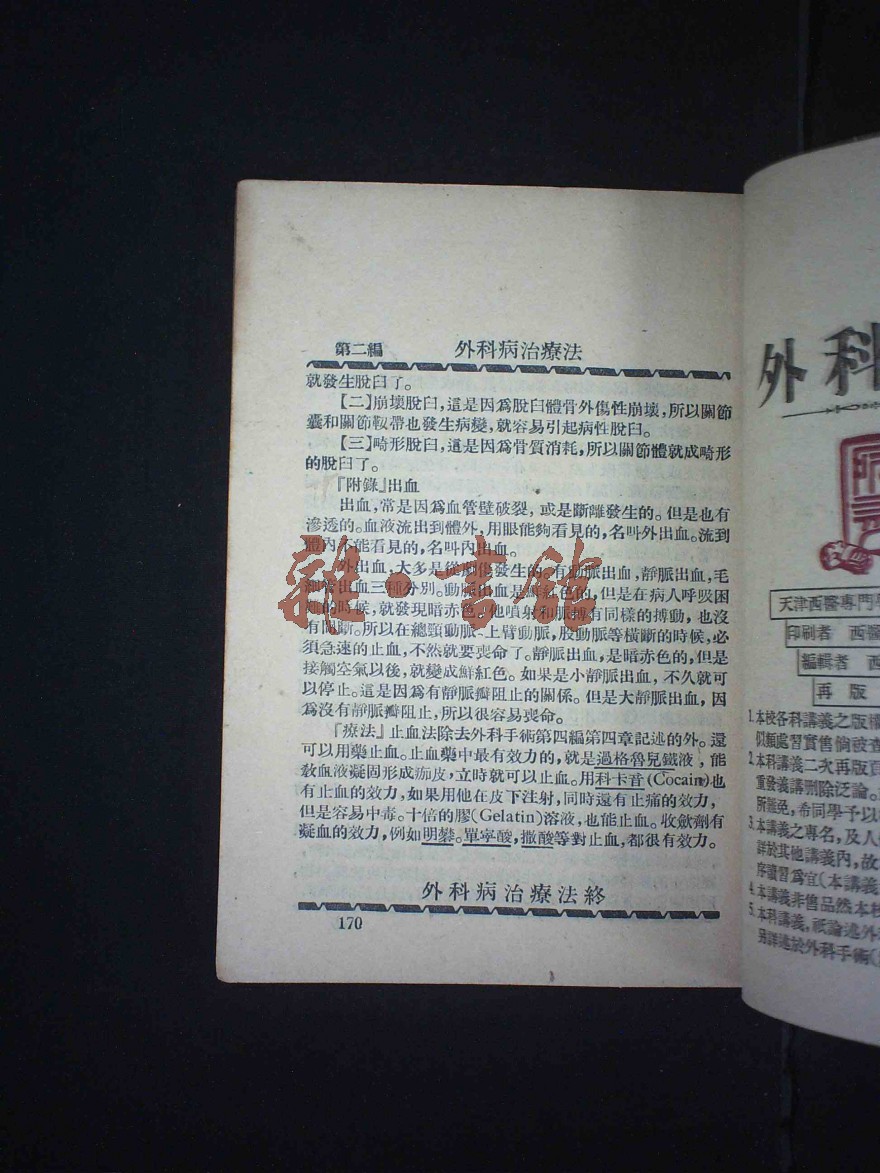 第二編 外科病治療法
就發生脫臼了。
【二】崩壞脫臼,這是因爲脫臼體骨外傷性崩壞,所以關節
囊和關節靱帶也發生病變,就容易引起病性脫臼。
【三】畸形脫臼,這是因爲骨質消耗,所以關節體就成畸形
的脫臼了。
『附錄』出血
出血,常是因爲血管壁破裂,或是斷離發生的。但是也有
滲透的。血液流出到體外,用眼能夠看見的,名叫外出血。流到
體內不能看見的,名叫內出血。
外出血,大多是從創傷發生的。有動脈出血,靜脈出血,毛
細管出血三種分別。動脈出血是鮮紅色的,但是在病人呼吸困
難的時候,就發現暗赤色。他噴射和脈搏有同樣的搏動,也沒
有間斷。所以在總頸動脈、上臂動脈,股動脈等橫斷的時候,必
須急速的止血,不然就要喪命了。靜脈出血,是暗赤色的,但是
接觸空氣以後,就變成鮮紅色。如果是小靜脈出血,不久就可
以停止。這是因爲有靜脈瓣阻止的關係。但是大靜脈出血,因
爲沒有靜脈瓣阻止,所以很容易喪命。
『療法』止血法除去外科手術第四編第四章記述的外。還
可以用藥止血。止血藥中最有效力的,就是過格魯兒鐵液,能
敎血液凝固形成痂皮,立時就可以止血。用科卡音(Cocain)也
有止血的效力,如果用他在皮下注射,同時還有止痛的效力,
但是容易中毒。十倍的膠(Gelatin)溶液,也能止血。收斂劑有
凝血的效力,例如明礬。單寧酸,撒酸等對止血,都很有效力。
外科病治療法終
170
雜·書館
外科
天津西醫專門學
印刷者 西醫
編輯者 西
再版
1.本校各科講義之版權
似類處習實售倘被查
2.本科講義二次再版頁
重發義講刪除泛論。
所難免,希同學予以
3.本講義之專名,及人
詳於其他講義內,故
序讀習爲宜(本講義
4.本講義非售品然本校
5.本科講義,祇論述外
另詳述於外科手術(